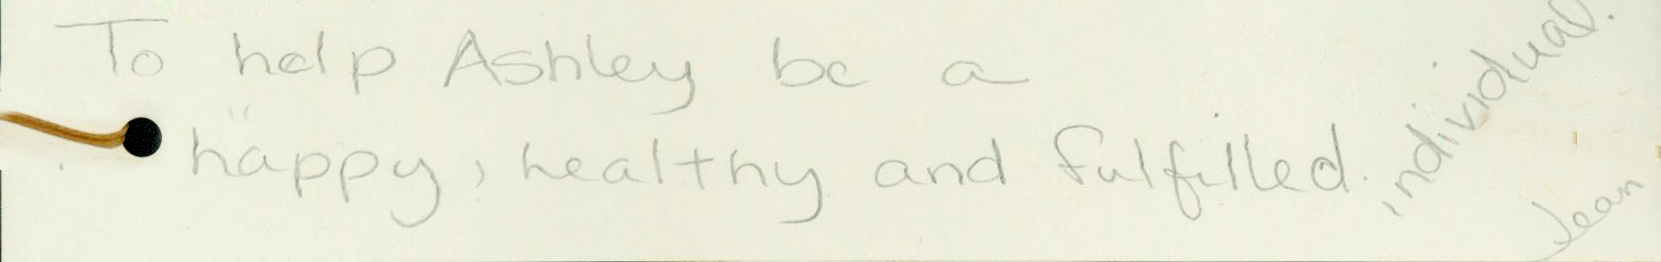 To help Ashley be a
happy, healthy and fulfilled.
individual.
Jean